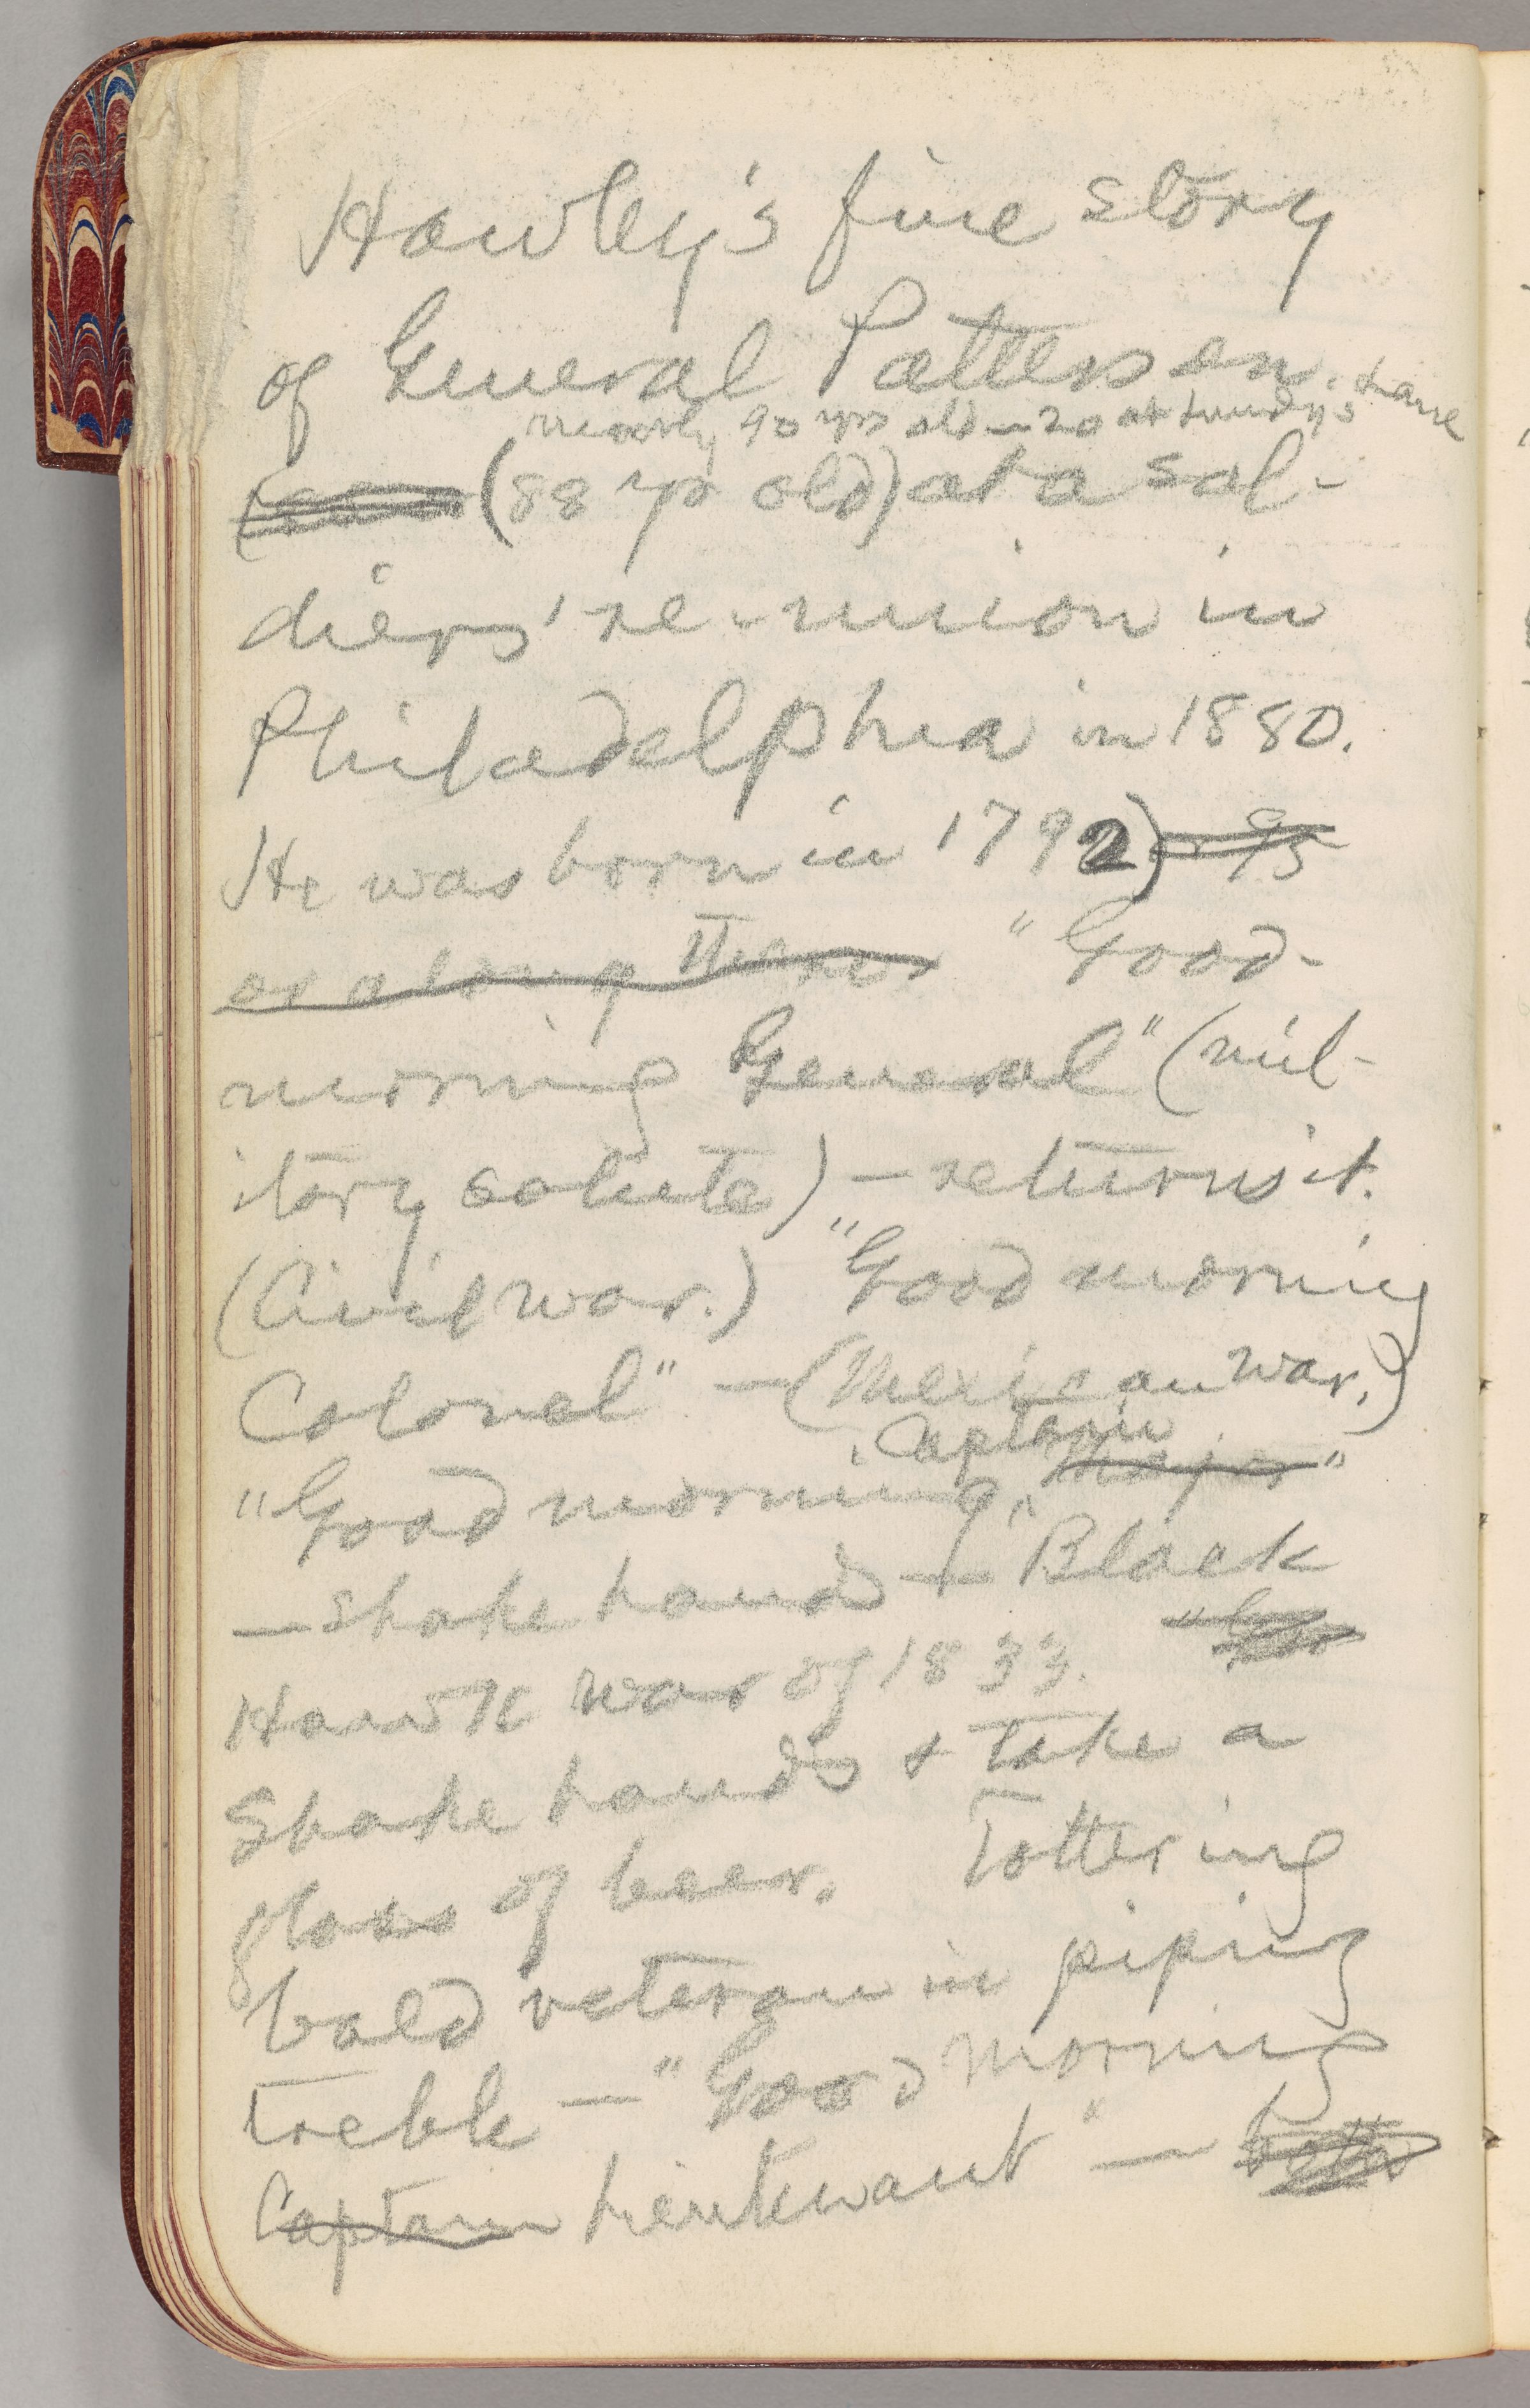 Hawley's fine story
of General Patterson
nearly 90 yrs old — 20 at Lundy's Lane
(88 yrs old) at a sol-
diers' re-union in
Philadelphia in 1880.
He was born in 1792) or 95
or along there. "Good-
morning General" (mil-
itary salute) — returns it.
(Civil war.) "Good morning
Colonel" — (Mexican war.)
Captain
"Good morning, Major"
— shake hands — Black
Hawk war of 1833.
Shake hands & take a
glass of beer. Tottering
bald veteran in piping
treble — "Good morning
Captain Lieutenant" —